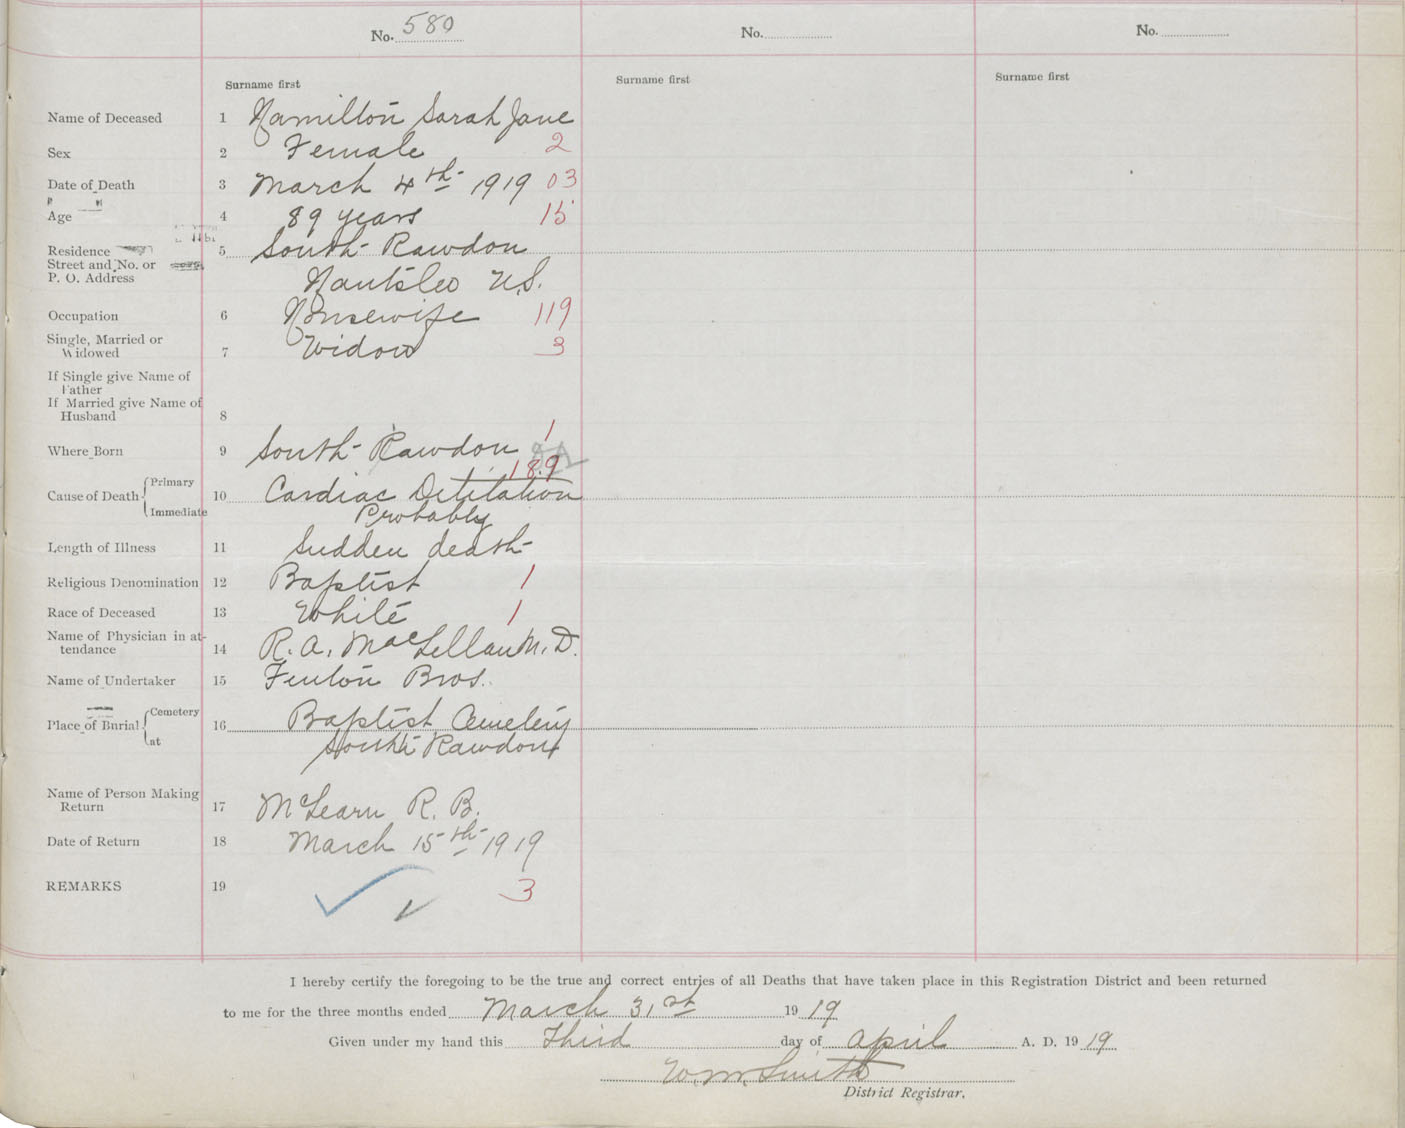 No. 580 No. No.
Surname first Surname first Surname first
Name of Deceased 1 Hamilton Sarah Jane
Sex 2 Female 2
Date of Death 3 March 4th 1919 03
Age 4 89 years 15
Residence 5 South Rawdon
Street and No. or
P. O. Address Hants Co N.S.
Occupation 6 Housewife 119
Single, Married or
Widowed 7 Widow 3
If Single give Name of
Father
If Married give Name of
Husband 8
1
Where Born 9 South Rawdon
189
Cause of Death Primary 10 Cardiac Ditilation
Immediate Probably
Length of Illness 11 Sudden death
Religious Denomination 12 Baptist 1
Race of Deceased 13 White 1
Name of Physician in at-
tendance 14 R. A. MacLellan M. D.
Name of Undertaker 15 Fenton Bros.
Place of Burial Cemetery 16 Baptist Cemetery
at South Rawdon
Name of Person Making
Return 17 McLearn R. B.
Date of Return 18 March 15th 1919
REMARKS 19 3
I hereby certify the foregoing to be the true and correct entries of all Deaths that have taken place in this Registration District and been returned
to me for the three months ended March 31st 1919
Given under my hand this Third day of April A. D. 1919
W. M. Smith
District Registrar.